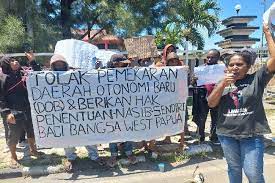 TOLAK PEMEKARAN
DAERAH OTONOMI BARU
(DOB) & BERIKAN HAK
PENENTUAN NASIB SENDIRI
BAGI BANGSA WEST PAPUA